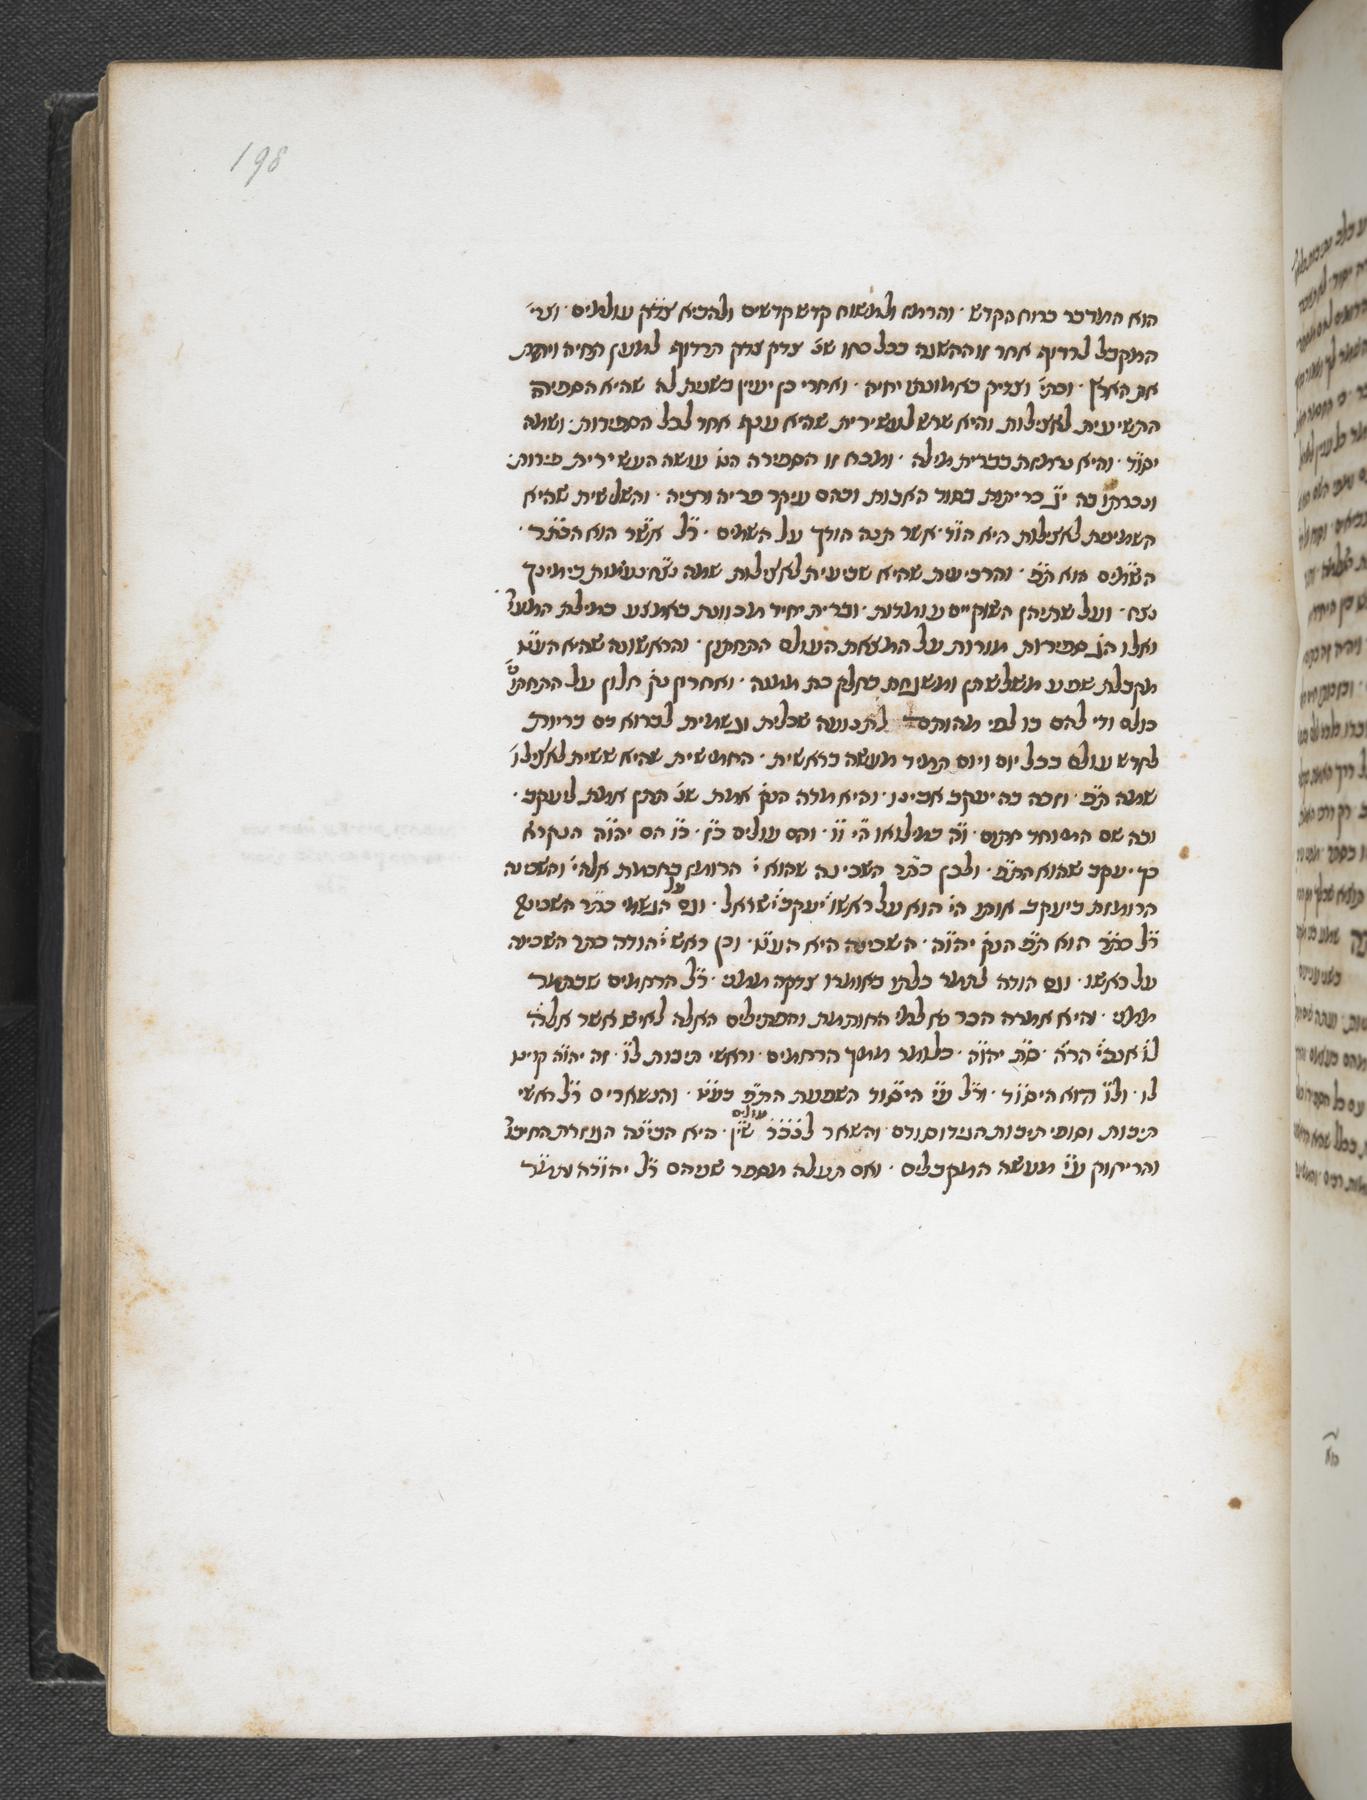 198
הוא המדבר ברוח הקדש · והרמז ולמשוח קדש קדשים ולהביא צדק עולמים · וצרי׳
המקבל לרדוף אחר זו ההשגה בכל כחו שנ׳ צדק צדק תרדוף למען תחיה וירשת
את הארץ · וכתי׳ וצדיק באמונתו יחיה · ואחרי כן יעיין בשמיות לה שהיא הספירה
התשיעית לאצילות והיא שרש לעשירית שהיא ענף אחד לכל הספירות · ושמה
יסוד · והיא נרמזת בברית מילה · ומכח זו הספירה הנז׳ עושה העשירית פירות ·
ונכרתו בה י״ג בריתות בסוד האבות ובהם עיקר פריה ורביה · והשלישית שהיא
השמינית לאצילות היא הוד · אשר תנה הודך על השמים · ר״ל אשר הוא הכתר ·
השמים הוא הת״ת · והרביעית שהיא שביעית לאצילות שמה נצח · נעימות בימינך
נצח · ועל שתיהן השוקיים עומדות · וברית יחיד מכוונת באמצע כמילת המעור
ואלו הג׳ ספירות מורות על המצאת העולם התחתון · והראשונה שהיא העט׳
מקבלת שפע משלשתן ומשגחת כחלק בת ממנה · ואחרון נתן חלון על התחתוני׳
כולם ודי להם בו לפי מהותם לתנועה שכלית וגשמית לברוא בם בריות
לחדש עולם בכל יום ויום תמיד מעשה בראשית · החמישית שהיא ששית לאצילו׳
שמה ת״ת · וזכה בה יעקב אבינו · והיא מדה הנק׳ אמת שנ׳ תתן אמת ליעקב ·
ובה שם המיוחד חתום · וה׳ במילואו ה״י ו״ו · והם עולים כ״ו · כ״ו הם יהוה הנקרא
כך · יעקב שהוא הת״ת · ולכן כתר השכינה שהוא י׳ הרומז בחכמת אלהי׳ והשכינה
הרומזת ביעקב אותו הי׳ הוא על ראשו יעקב ישראל · וגם הנשמי כתר השכינה
ר״ל כתר הוא הת״ת הנק׳ יהוה · השכינה היא העט׳ · וכן ראש יהודה כתר השכינה
על ראשו · וגם הודה לתמר כלתו באומרו צדקה ממני · ר״ל הרחמים שבתמר
ממני · והיא אמרה הכר נא למי החותמת והפתילים האלה לאיש אשר אלה
לו אנכי הרה · ס״ת יהוה · כלומר ממך הרחמים · וראשי תיבות לו · זה יהוה קוינו
לו · ול״ו הוא היסוד · ור״ל ע״י היסוד השפעת הת״ת בעט׳ · והנשארים ר״ל ראשי
עולים
תיבות וסופי תיבות · והשאר · היא הבינה
והריחוק ע״י מעשה המקבלים · ואם תעלה מספר שמהם ר״ל יהודה ותמר